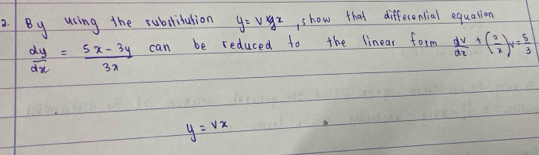 2. By using the substitution y = vx, show that differential equation
dy/dx = (5x - 3y)/3x can be reduced to the linear form dv/dx + (2/x)v = 5/3
y = vx